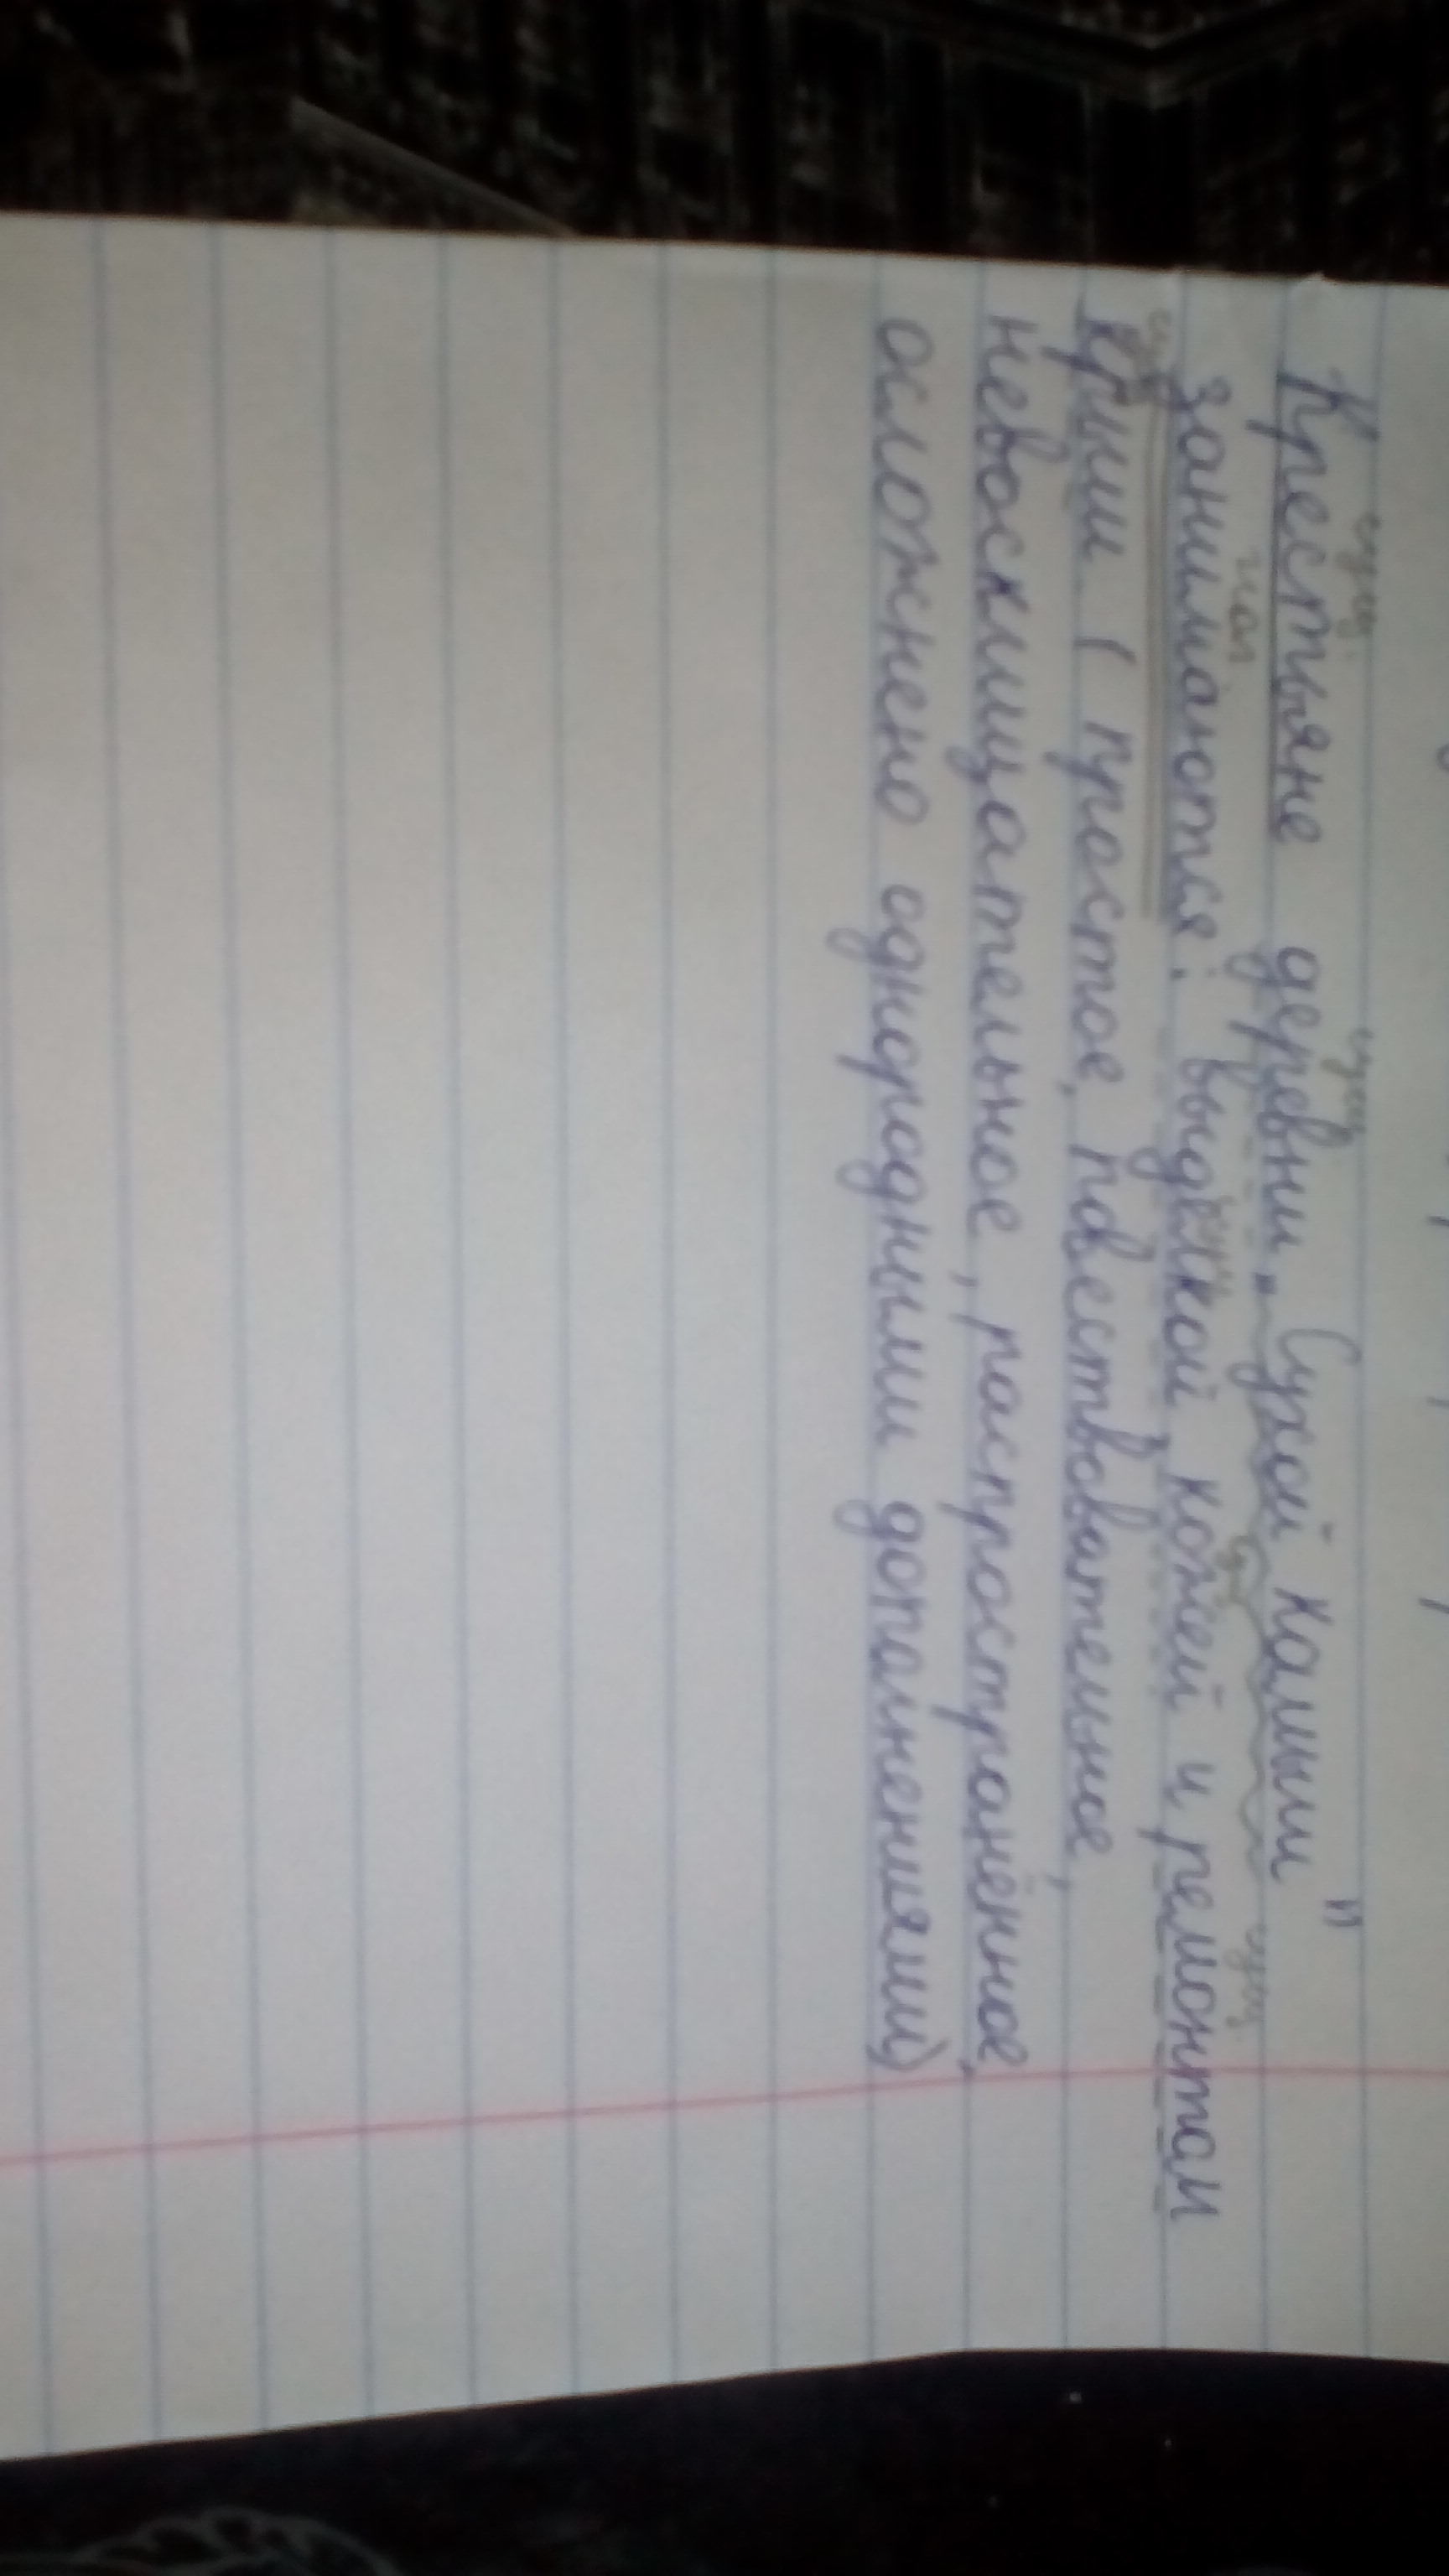 сущ. сущ
Крестьяне деревни „Сухой Камыш"
гл
занимаются: выделкой кожей и ремонтом
крыш. (простое, повествовательное,
невосклицательное, распространённое,
осложнено однородными дополнениями)